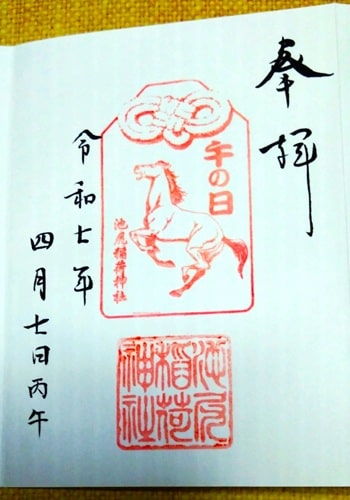 奉拝
午の日
池尻稲荷神社
池尻
稲荷
神社
令和七年
四月七日丙午